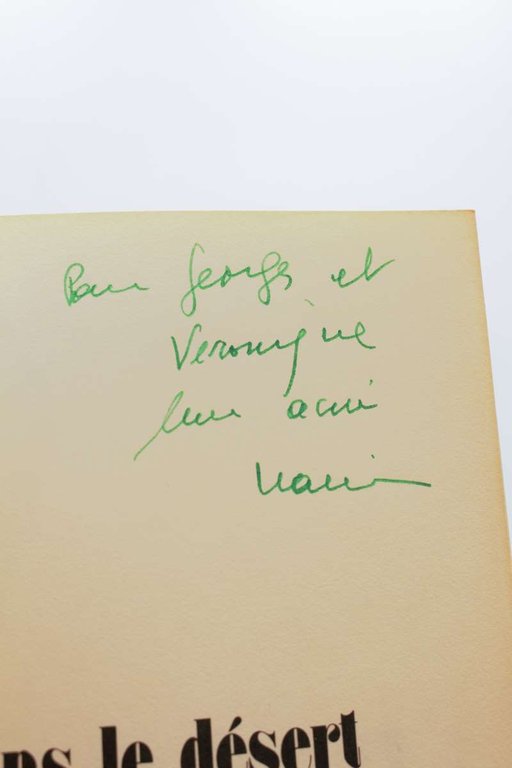 Pour Georges et
Veronique
leur ami
ns le désert